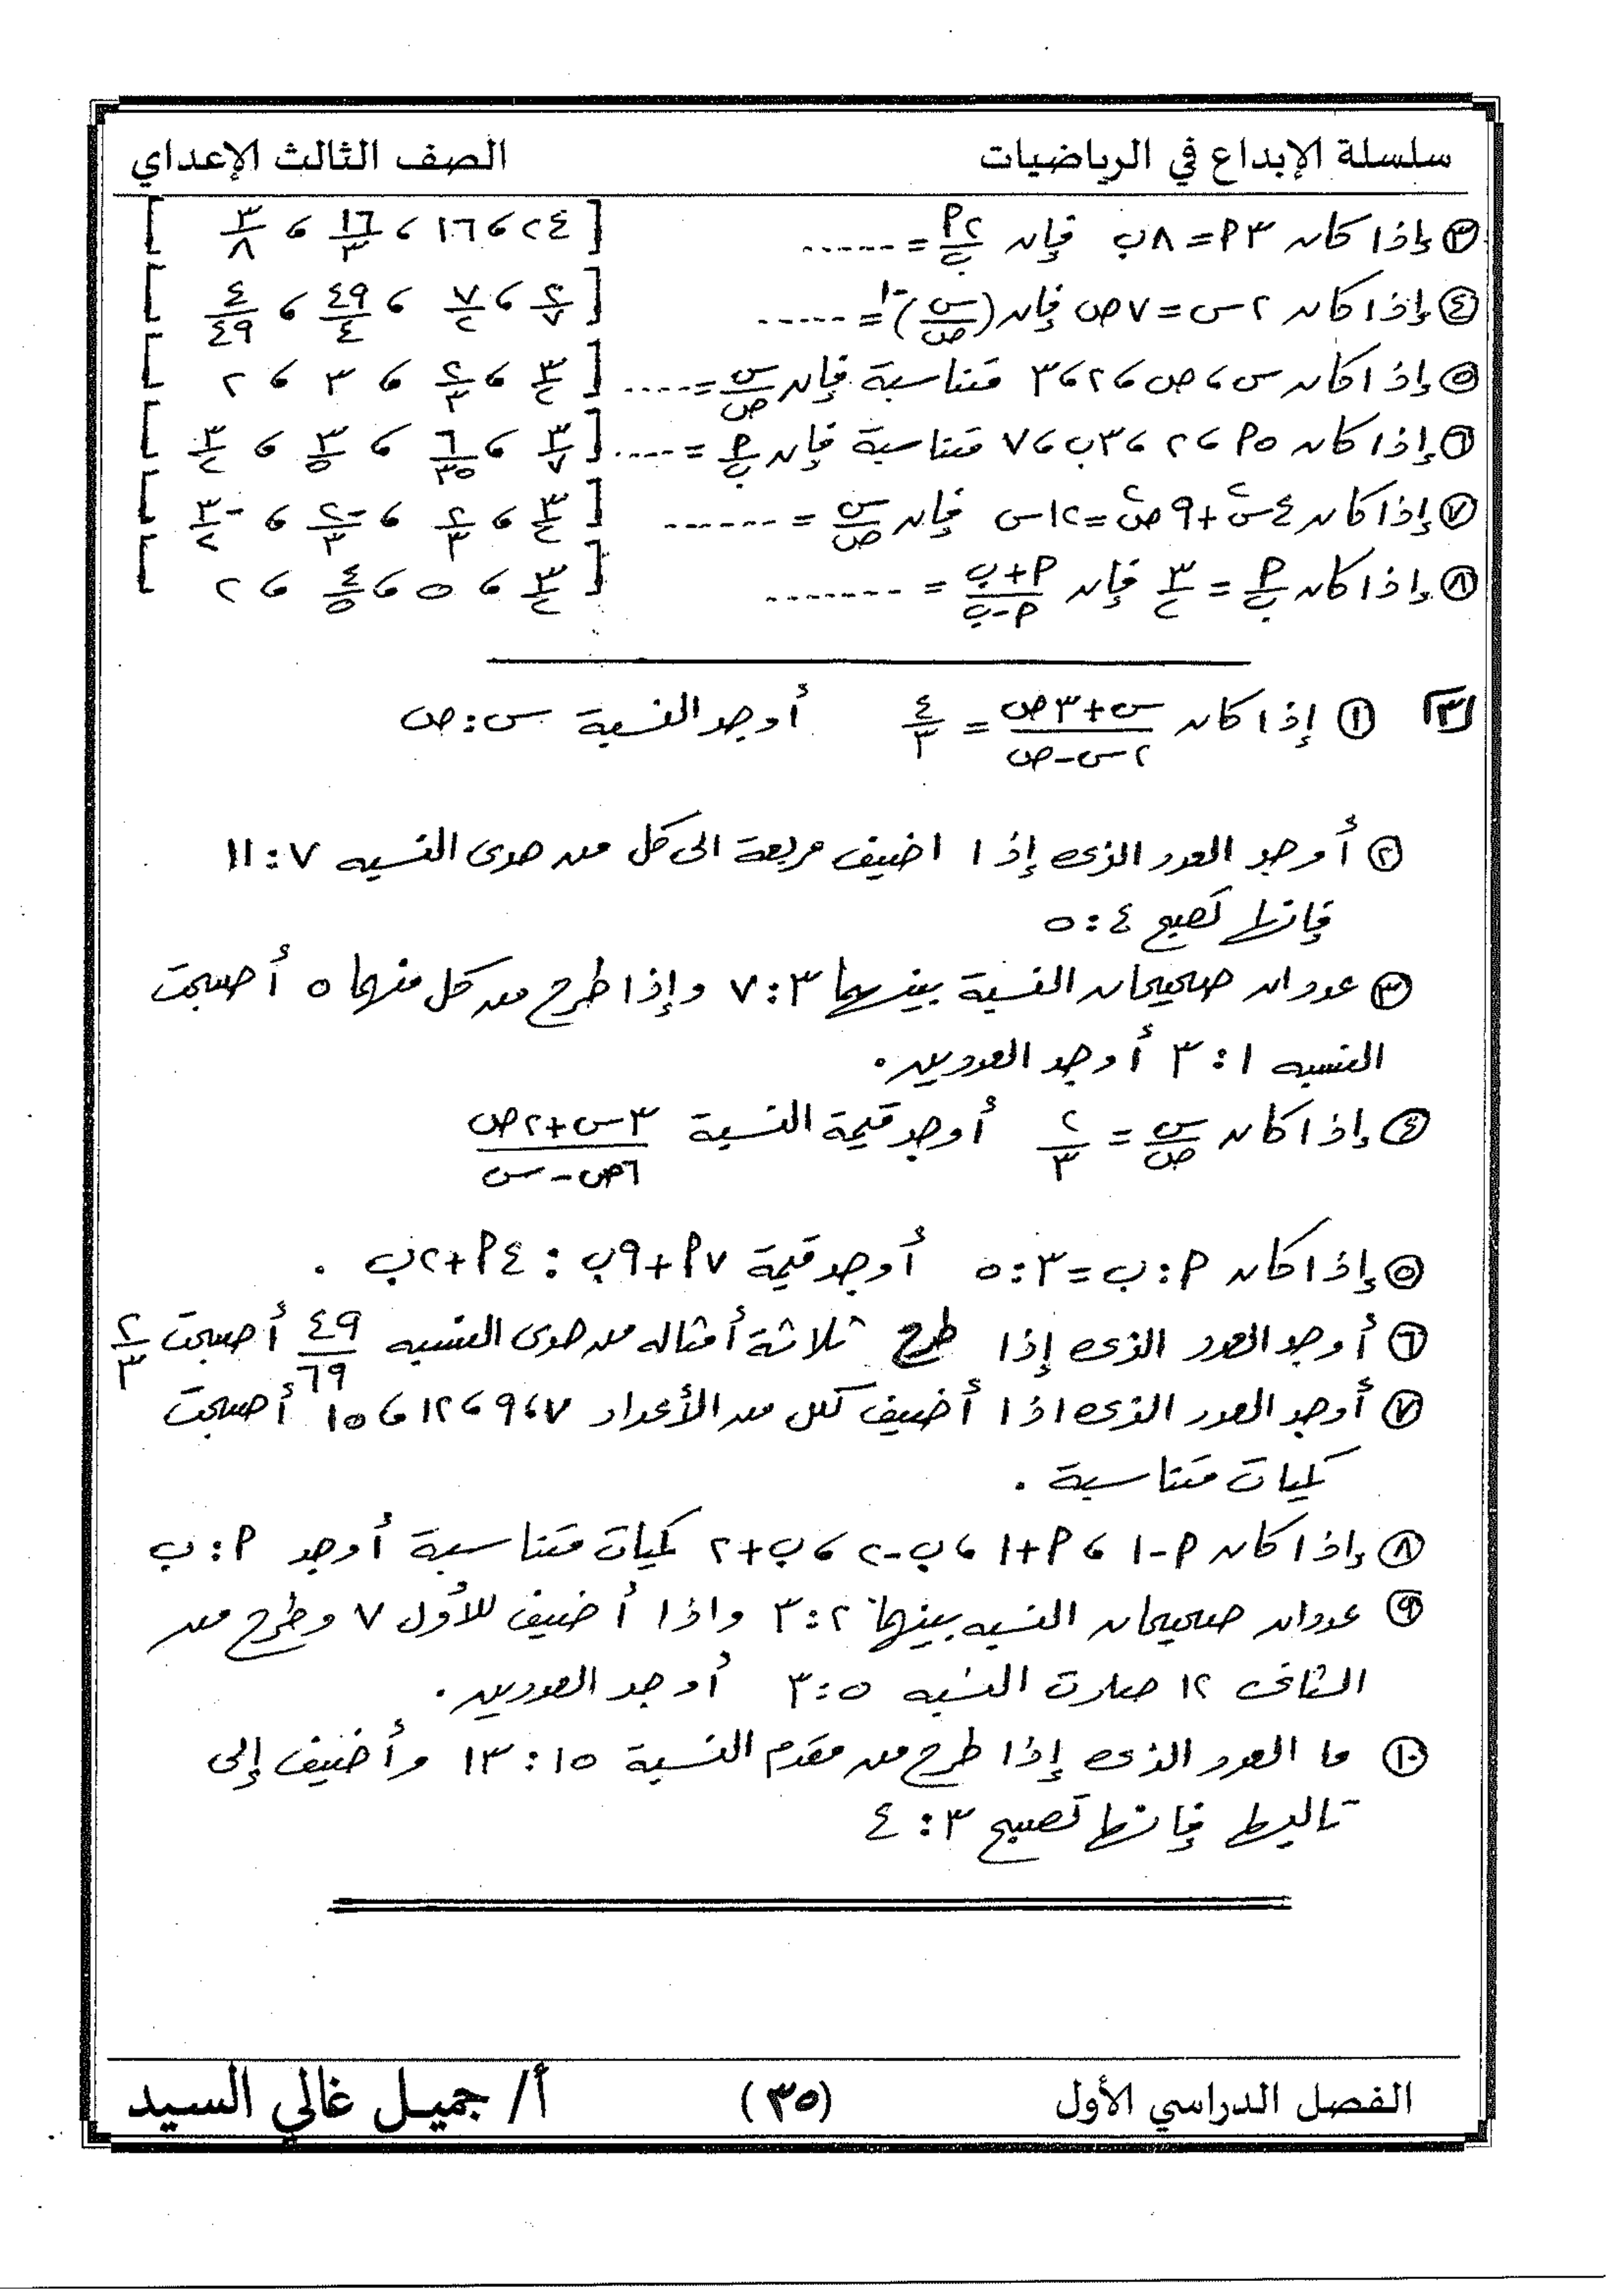 سلسلة الإبداع في الرياضيات الصف الثالث الإعداي
٣ إذا كان ٣ أ = ٨ ب فإن ٢أ/ب = ...... [ ٢٤ ، ١٦ ، ١٦/٣ ، ٣/٨ ]
٤ إذا كان ٢ س = ٧ ص فإن (س/ص)^-١ = ..... [ ٢/٧ ، ٧/٢ ، ٤٩/٤ ، ٤/٤٩ ]
٥ إذا كان س ، ص ، ٢ ، ٣ متناسبة فإن س/ص = .... [ ٣/٢ ، ٢/٣ ، ٣ ، ٢ ]
٦ إذا كان ٥ أ ، ٢ ، ٣ ب ، ٧ متناسبة فإن أ/ب = .... [ ٣/٧ ، ٦/٣٥ ، ٣/٥ ، ٣/٢ ]
٧ إذا كان ٤ س٢ + ٩ ص٢ = ١٢ س فإن س/ص = ...... [ ٣/٢ ، ٢/٣ ، -٢/٣ ، -٣/٢ ]
٨ إذا كان أ/ب = ٣/٢ فإن أ+ب/أ-ب = ....... [ ٣/٢ ، ٥ ، ٤/٥ ، ٢ ]
٣ ١ إذا كان س+٣ص/٢س-ص = ٤/٣ أوجد النسبة س : ص
٢ أوجد العدد الذى إذا اضيف مربعة الى كل من حدى النسبه ٧ : ١١
فإنها تصبح ٤ : ٥
٣ عددان صحيحان النسبة بينهما ٣ : ٧ وإذا طرح من كل منهما ٥ أصبحت
النسبه ١ : ٣ أوجد العددين .
٤ إذا كان س/ص = ٢/٣ أوجد قيمة النسبة ٣س+٢ص/٦ص-س
٥ إذا كان أ : ب = ٣ : ٥ أوجد قيمة ٧ أ + ٩ ب : ٤ أ + ٢ ب .
٦ أوجد العدد الذى إذا طرح ثلاثة أمثاله من حدى النسبه ٤٩/٦٩ أصبحت ٢/٣
٧ أوجد العدد الذى اذا أضيف لكل من الأعداد ٧ ، ٩ ، ١٢ ، ١٥ أصبحت
كميات متناسبة .
٨ إذا كان أ - ١ ، أ + ١ ، ب - ٢ ، ب + ٢ كميات متناسبة أوجد أ : ب
٩ عددان صحيحان النسبه بينهما ٢ : ٣ واذا أضيف للأول ٧ وطرح من
الثانى ١٢ صارت النسبه ٥ : ٣ أوجد العددين .
١٠ ما العدد الذى إذا طرح من مقدم النسبة ١٥ : ١٣ وأضيف إلى
تاليها فإنها تصبح ٣ : ٤
الفصل الدراسي الأول (٣٥) أ/ جميل غالي السيد